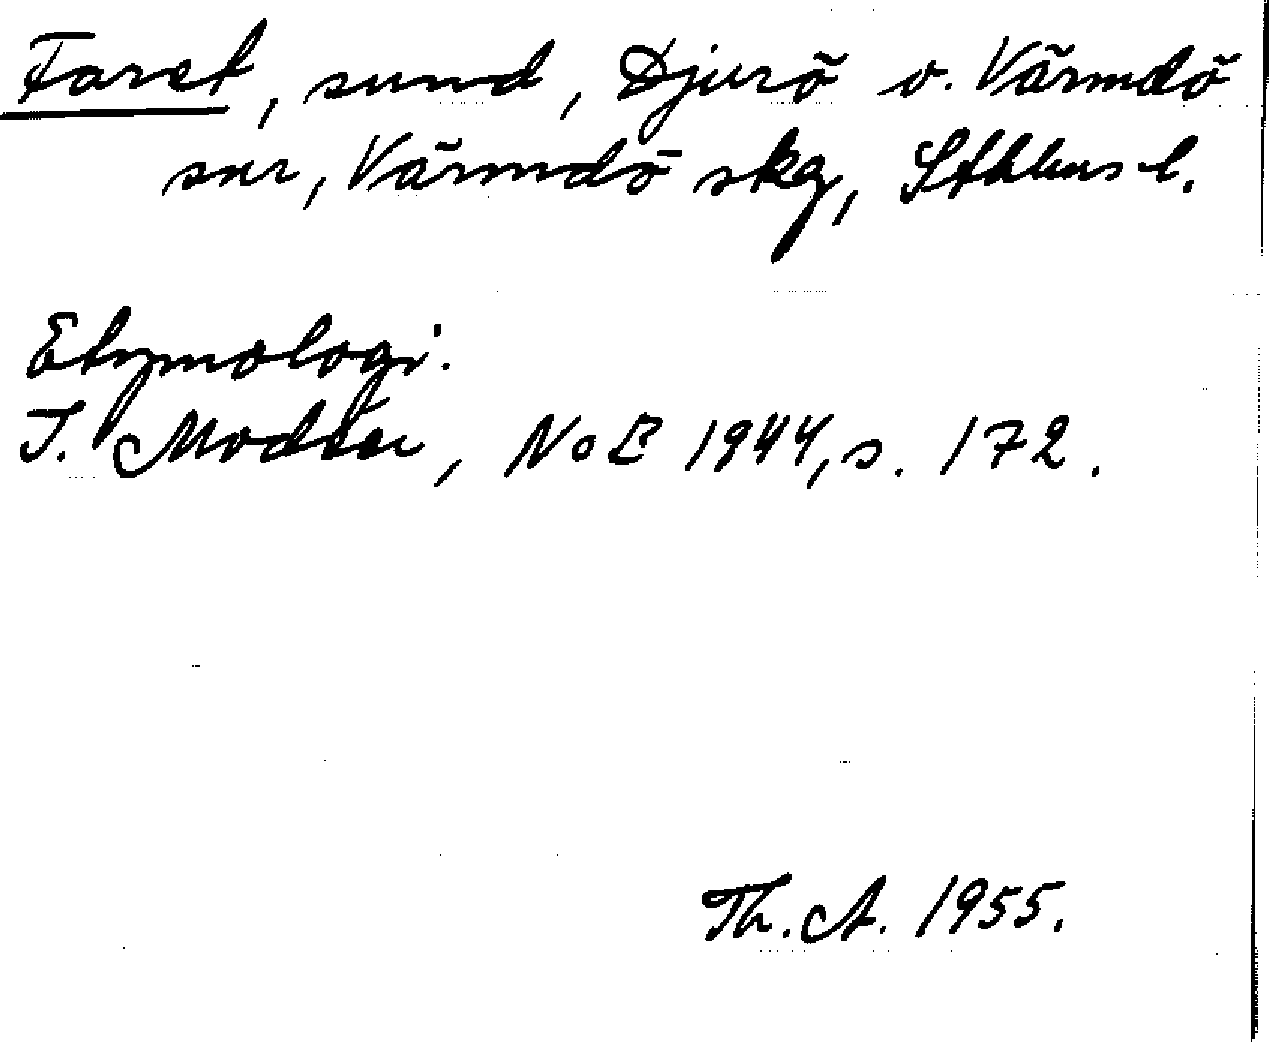 Faret, sund, Djurö o. Värmdö
snr, Värmdö skg, Sthlms l.
Etymologi.
I. Modéer, NoB 1944, s. 172.
Th. A. 1955.